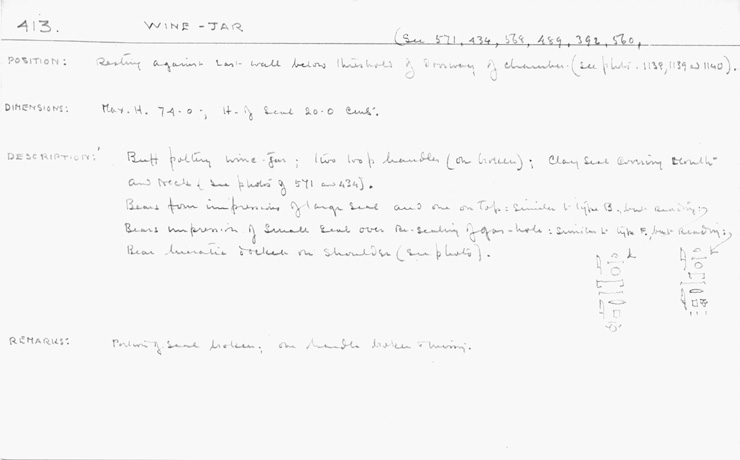 413. WINE-JAR
(See 571, 434, 568, 489, 392, 560,
POSITION: Resting against East wall below threshold of Doorway of chamber. (See photo. 1138, 1139 & 1140).
DIMENSIONS: Max. H. 74.0; H. of Seal 20.0 cms.
DESCRIPTION: Buff pottery wine-jar; two loop handles (one broken); Clay seal covering mouth
and neck (see photos of 571 and 434).
Bears four impressions of large seal and one on top: similar to type B, but reading
Bears impression of small seal over the sealing of gas-hole: similar to type F, but reading:
Bears hieratic docket on shoulder (see photo).
REMARKS: Portion of seal broken; one handle broken & missing.